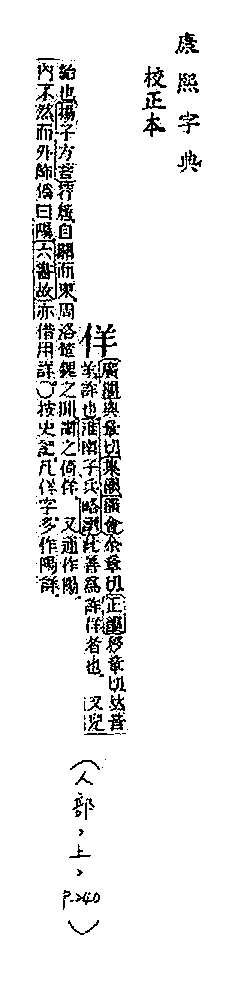 康熙字典
校正本
佯
廣韻與章切集韻韻會余章切正韻移章切𠀤音
羊詐也淮南子兵略訓此善爲詐佯者也 又兒
紿也揚子方言
自關而東周洛
之閒謂之倘佯 又通作陽
內不然而外飾
曰陽六書故亦借用詳〇按史記凡佯字多作陽詳
(人部,上,P.240)